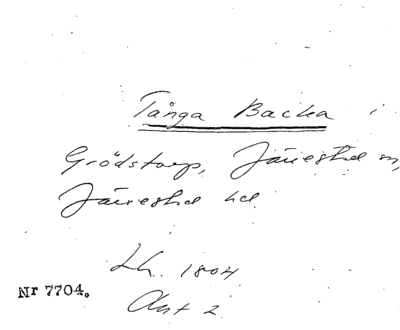 Tånga Backa i
Grödstorp, Järrestad sn,
Järrestad hd
Lh. 1804
Akt 2
Nr 7704.